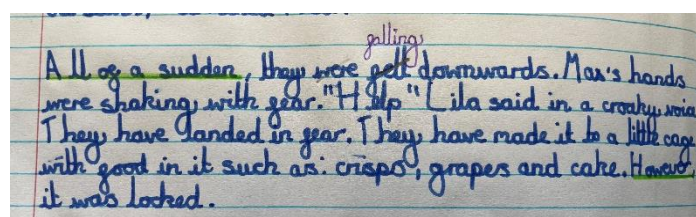 falling
All of a sudden, they were felt downwards. Max's hands
were shaking with fear. "Help" Lila said in a croaky voic
They have landed in fear. They have made it to a little cage
with food in it such as: crisps, grapes and cake. However,
it was locked.